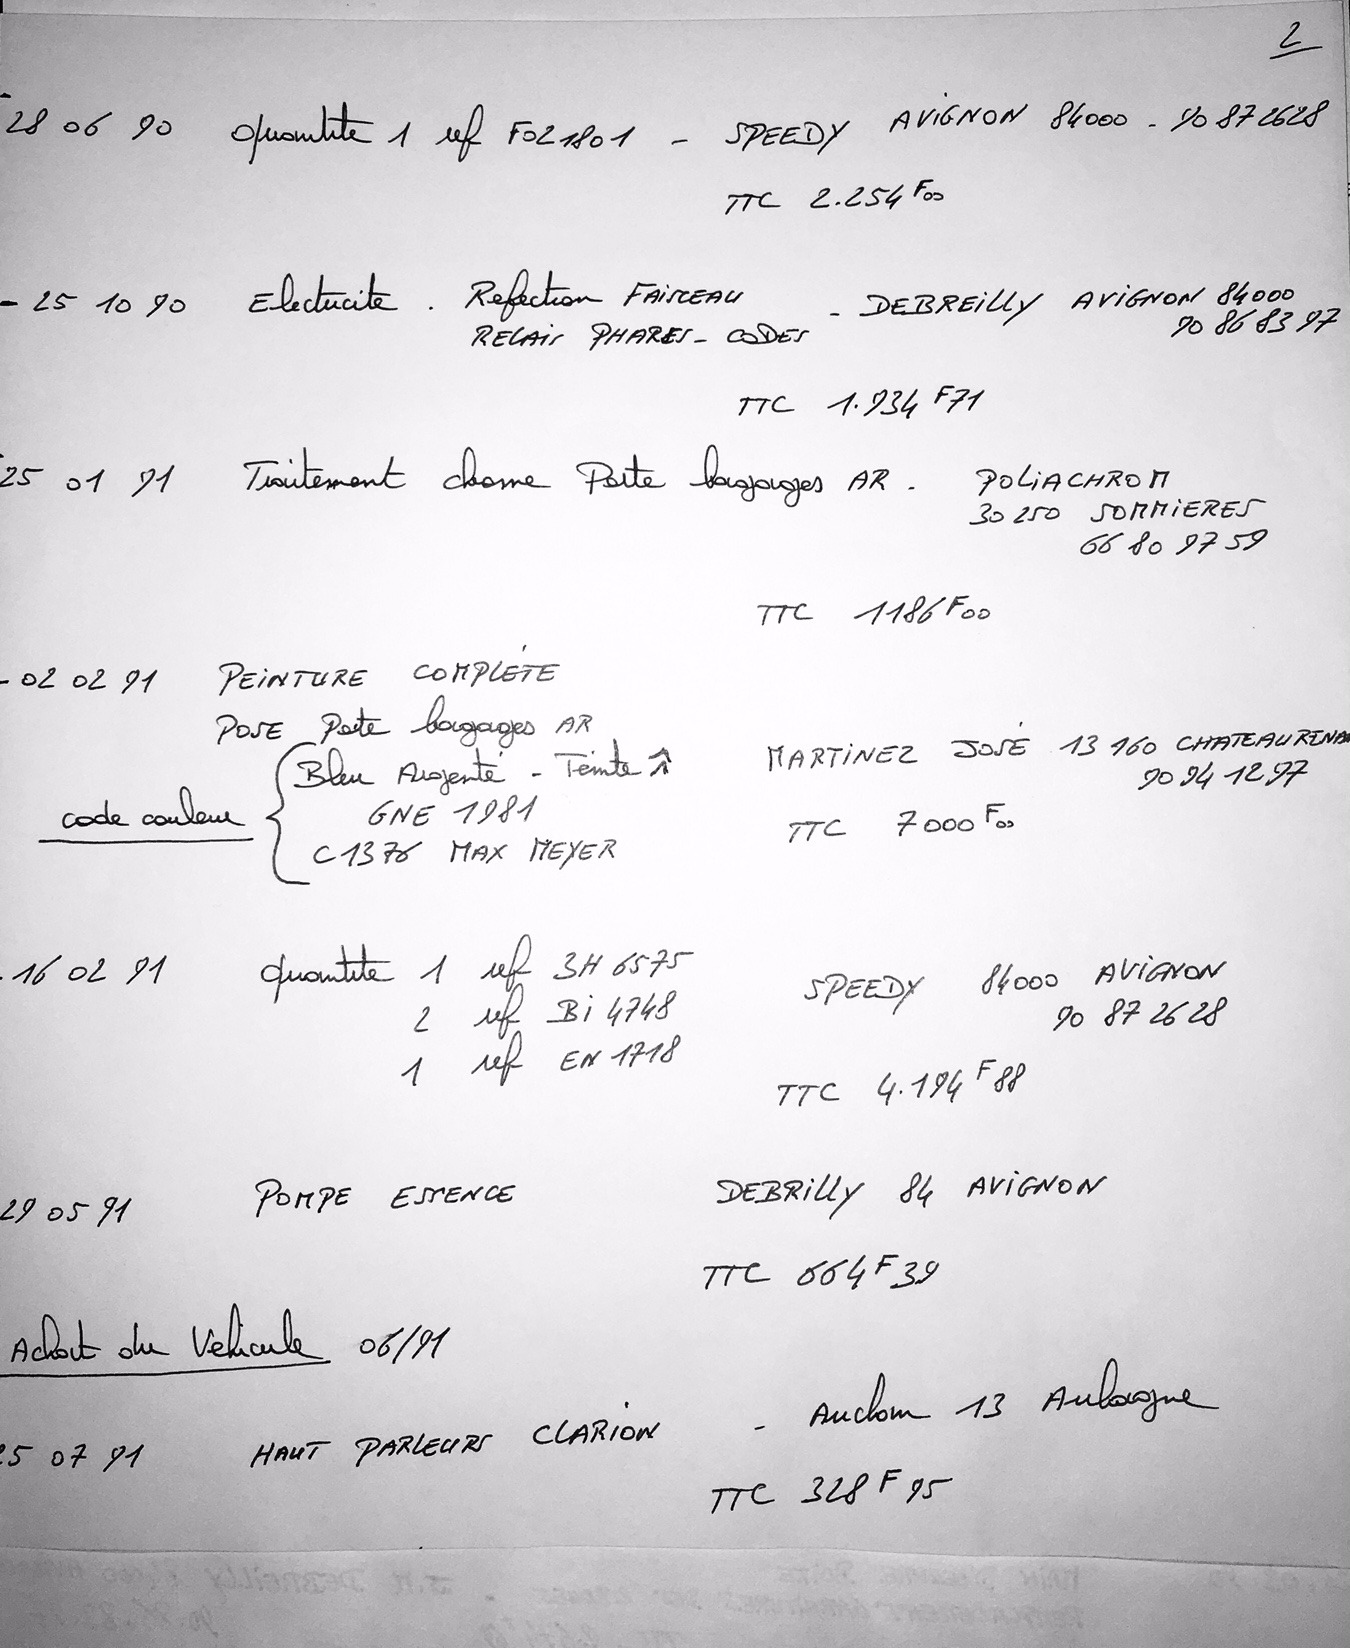 2
- 28 06 90 Quantite 1 ref F021801 - SPEEDY AViGNON 84000 - 90 87 26 28
TTC 2.254 F00
- 25 10 90 Electricite . Refection FAISCEAU - DEBREILLY AViGNON 84000
RELAIS PHARES - CODES 90 86 83 97
TTC 1.934 F71
- 25 01 91 Traitement chrome Porte bagages AR . POLiACHROM
30 250 SOMMIERES
66 80 97 59
TTC 1186 F00
- 02 02 91 PEiNTURE COMPLÉTE
POSE Porte bagages AR
Bleu Argenté - Teinte MARTiNEZ JOSÉ 13 160 CHATEAURENA
code couleur GNE 1981 90 94 12 97
C1376 MAX MEYER TTC 7000 F00
- 16 02 91 Quantite 1 ref 3H 6575 SPEEDY 84000 AViGNON
2 ref Bi 4748 90 87 26 28
1 ref EN 1718
TTC 4.194 F 88
29 05 91 POMPE ESSENCE DEBRiLLY 84 AViGNON
TTC 664 F 39
Achat du Vehicule 06/91
25 07 91 HAUT PARLEURS CLARiON - Auchan 13 Aubagne
TTC 328 F 95